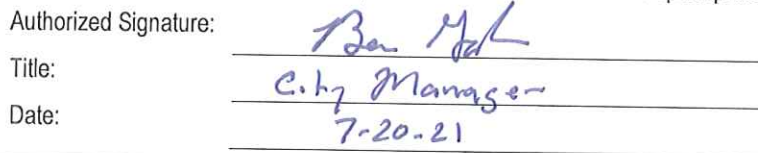 Authorized Signature: Ben
Title: City Manager
Date: 7-20-21